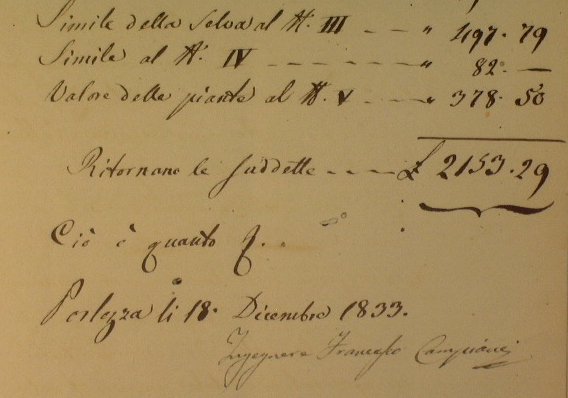 Simile della Selva al N. III - - - " 497. 79
Simile al N. IV - - - - - - - " 82. —
Valore delle piante al N. V - - - " 378. 50
Ritornano le suddette - - - - £ 2153. 29
Ciò è quanto
Porlezza li 18. Dicembre 1833.
Ingegnere Francesco